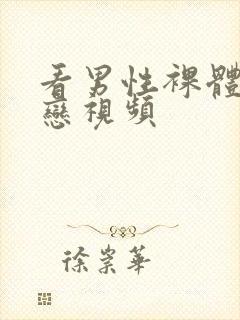 看男性裸體
戀視頻
徐崇華